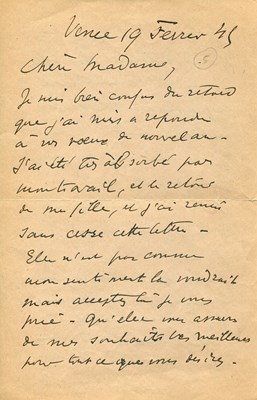 Vence 19 Fevrier 45
5
Chère Madame,
Je suis bien confus du retard
que j'ai mis a repondre
à vos vœux de nouvel an.
J'ai été très absorbé par
mon travail, et le retour
de ma fille, et j'ai remis
sans cesse cette lettre -
Elle n'est pas comme
mon sentiment la voudrait
mais acceptez la je vous
prie - Qu'elle vous assure
de mes souhaits les meilleurs
pour tout ce que vous désirez.